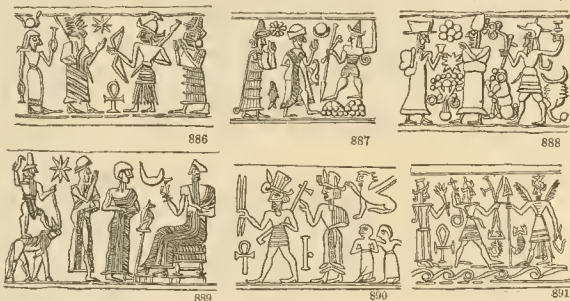 886 887 888
889 890 891